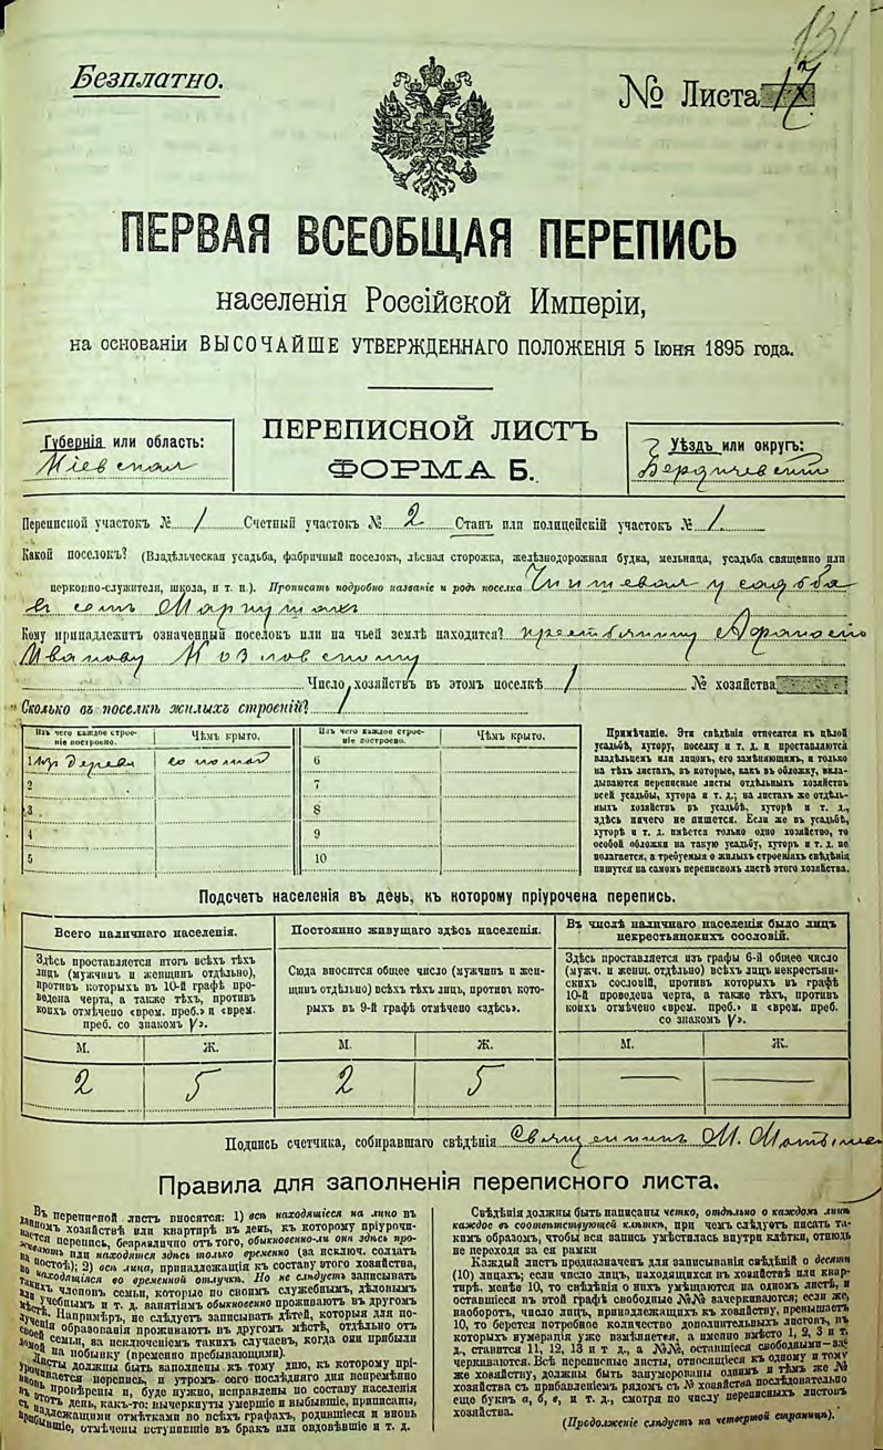 131
Безплатно.
№ Листа 17
ПЕРВАЯ ВСЕОБЩАЯ ПЕРЕПИСЬ
населенія Россійской Имперіи,
на основаніи ВЫСОЧАЙШЕ УТВЕРЖДЕННАГО ПОЛОЖЕНІЯ 5 Іюня 1895 года.
Губернія или область:
Кіевская
ПЕРЕПИСНОЙ ЛИСТЪ
ФОРМА Б.
Уѣздъ или округъ:
Бердичевскій
Переписной участокъ № 1 Счетный участокъ № 2 Станъ или полицейскій участокъ № 1
Какой поселокъ? (Владѣльческая усадьба, фабричный поселокъ, лѣсная сторожка, желѣзнодорожная будка, мельница, усадьба священно или
церковно-служителя, школа, и т. п.). Прописать подробно названіе и родъ поселка усадьба
въ селѣ
Кому принадлежитъ означенный поселокъ или на чьей землѣ находится?
Иванову Козловскому
Число хозяйствъ въ этомъ поселкѣ 1 № хозяйства
Сколько въ поселкѣ жилыхъ строеній? 1
Изъ чего каждое строеніе построено. Чѣмъ крыто. Изъ чего каждое строеніе построено. Чѣмъ крыто.
1 Изъ дерева соломой 6
2 7
3 8
4 9
5 10
Примѣчаніе. Эти свѣдѣнія относятся къ цѣлой
усадьбѣ, хутору, поселку и т. д. и проставляются
владѣльцемъ или лицомъ, его замѣняющимъ, и только
на тѣхъ листахъ, въ которые, какъ въ обложку, вкла-
дываются переписные листы отдѣльныхъ хозяйствъ
всей усадьбы, хутора и т. д.; на листахъ же отдѣль-
ныхъ хозяйствъ въ усадьбѣ, хуторѣ и т. д.,
здѣсь ничего не пишется. Если же въ усадьбѣ,
хуторѣ и т. д. имѣется только одно хозяйство, то
особой обложки на такую усадьбу, хуторъ и т. д. не
полагается, а требуемыя о жилыхъ строеніяхъ свѣдѣнія
пишутся на самомъ переписномъ листѣ этого хозяйства.
Подсчетъ населенія въ день, къ которому пріурочена перепись.
Всего наличнаго населенія.
Здѣсь проставляется итогъ всѣхъ тѣхъ
лицъ (мужчинъ и женщинъ отдѣльно),
противъ которыхъ въ 10-й графѣ про-
ведена черта, а также тѣхъ, противъ
коихъ отмѣчено «врем. преб.» и «врем.
преб. со знакомъ V».
М. Ж.
2 5
Постоянно живущаго здѣсь населенія.
Сюда вносится общее число (мужчинъ и жен-
щинъ отдѣльно) всѣхъ тѣхъ лицъ, противъ кото-
рыхъ въ 9-й графѣ отмѣчено «здѣсь».
М. Ж.
2 5
Въ числѣ наличнаго населенія было лицъ
некрестьянскихъ сословій.
Здѣсь проставляется изъ графы 6-й общее число
(мужч. и женщ. отдѣльно) всѣхъ лицъ некрестьян-
скихъ сословій, противъ которыхъ въ графѣ
10-й проведена черта, а также тѣхъ, противъ
коихъ отмѣчено «врем. преб.» и «врем. преб.
со знакомъ V».
М. Ж.
— —
Подпись счетчика, собиравшаго свѣдѣнія Священникъ М.
Правила для заполненія переписного листа.
Въ переписной листъ вносятся: 1) всѣ находящіеся на лицо въ
данномъ хозяйствѣ или квартирѣ въ день, къ которому пріурочи-
вается перепись, безразлично отъ того, обыкновенно-ли они здѣсь про-
живаютъ или находятся здѣсь только временно (за исключ. солдатъ
на постоѣ); 2) всѣ лица, принадлежащія къ составу этого хозяйства,
но находящіяся во временной отлучкѣ. Но не слѣдуетъ записывать
такихъ членовъ семьи, которые по своимъ служебнымъ, дѣловымъ
или учебнымъ и т. д. занятіямъ обыкновенно проживаютъ въ другомъ
мѣстѣ. Напримѣръ, не слѣдуетъ записывать дѣтей, которыя для по-
лученія образованія проживаютъ въ другомъ мѣстѣ, отдѣльно отъ
своей семьи, за исключеніемъ такихъ случаевъ, когда они прибыли
домой на побывку (временно пребывающими).
Листы должны быть заполнены къ тому дню, къ которому прі-
урочивается перепись, и утромъ сего послѣдняго дня непремѣнно
вновь провѣрены и, буде нужно, исправлены по составу населенія
въ этотъ день, какъ-то: вычеркнуты умершіе и выбывшіе, приписаны,
съ надлежащими отмѣтками во всѣхъ графахъ, родившіеся и вновь
прибывшіе, отмѣчены вступившіе въ бракъ или овдовѣвшіе и т. д.
Свѣдѣнія должны быть написаны четко, отдѣльно о каждомъ лицѣ
каждое въ соотвѣтствующей клѣткѣ, при чемъ слѣдуетъ писать та-
кимъ образомъ, чтобы вся запись умѣстилась внутри клѣтки, отнюдь
не переходя за ея рамки
Каждый листъ предназначенъ для записыванія свѣдѣній о десяти
(10) лицахъ; если число лицъ, находящихся въ хозяйствѣ или квар-
тирѣ, менѣе 10, то свѣдѣнія о нихъ умѣщаются на одномъ листѣ, и
оставшіеся въ этой графѣ свободные №№ вачеркиваются; если же,
наоборотъ, число лицъ, принадлежащихъ къ хозяйству, превышаетъ
10, то берется потребное количество дополнительныхъ листовъ, въ
которыхъ нумерація уже измѣняется, а именно вмѣсто 1, 2, 3 и т.
д., ставится 11, 12, 13 и т д., а №№, оставшіеся свободными—за-
черкиваются. Всѣ переписные листы, относящіеся къ одному и тому
же хозяйству, должны быть занумерованы однимъ и тѣмъ же №
хозяйства съ прибавленіемъ рядомъ съ № хозяйства послѣдовательно
еще буквъ а, б, в, и т. д., смотря по числу переписныхъ листовъ
хозяйства.
(Продолженіе слѣдуетъ на четвертой страницѣ).